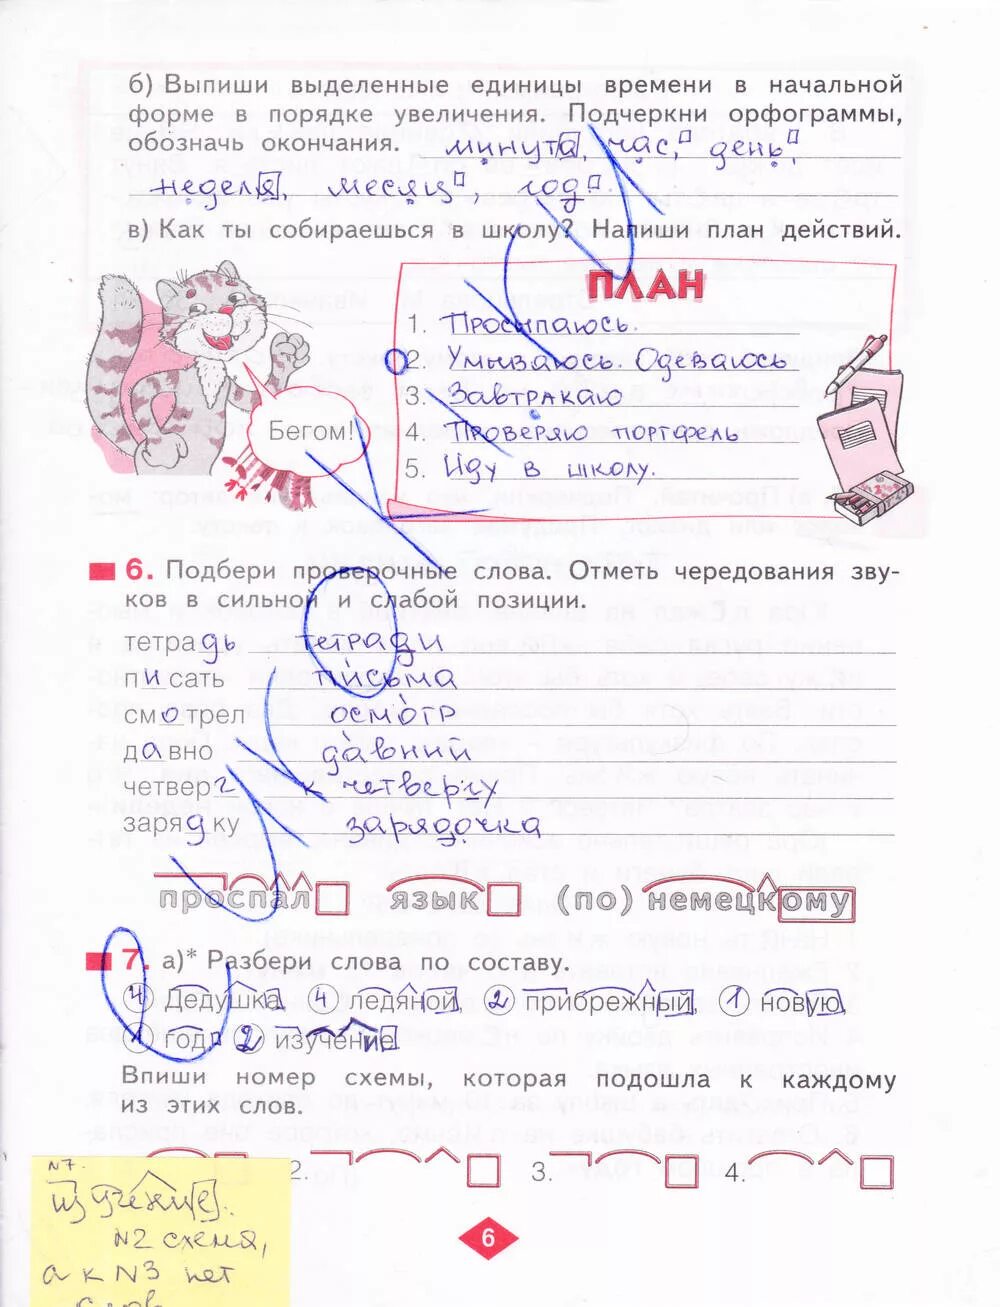 б) Выпиши выделенные единицы времени в начальной
форме в порядке увеличения. Подчеркни орфограммы,
обозначь окончания. минута, час, день,
неделя, месяц, год.
в) Как ты собираешься в школу? Напиши план действий.
ПЛАН
1. Просыпаюсь.
2. Умываюсь. Одеваюсь
3. Завтракаю
4. Проверяю портфель
5. Иду в школу.
Бегом!
6. Подбери проверочные слова. Отметь чередования зву-
ков в сильной и слабой позиции.
тетрадь тетради
писать письма
смотрел осмотр
давно давний
четверг к четвергу
зарядку зарядочка
проспал язык (по) немецкому
7. а)* Разбери слова по составу.
4 Дедушка, 4 ледяной, 2 прибрежный, 1 новую,
год, 2 изучение
Впиши номер схемы, которая подошла к каждому
из этих слов.
2. 3. 4.
N7
изучение.
N2 схема,
а к N3 нет
слов
6